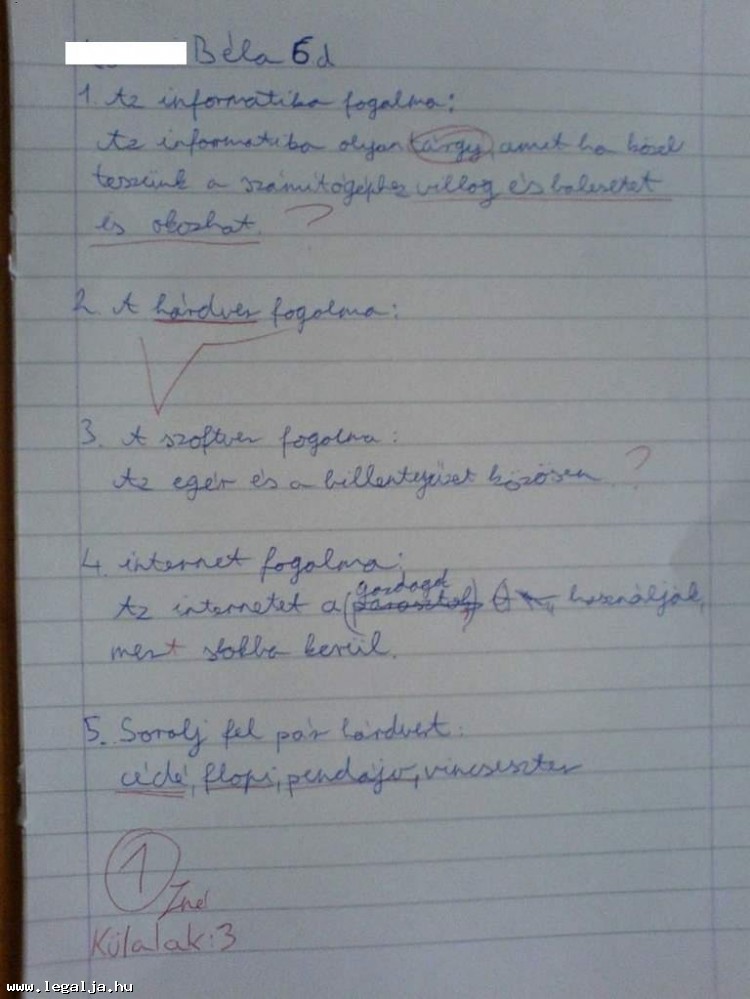 Béla 6d
1. Az informatika fogalma:
Az informatika olyan tárgy, amit ha közel
teszünk a számítógéphez villog és balesetet
és okozhat. ?
2. A hárdver fogalma:
3. A szoftver fogalma:
Az egér és a billentyűzet közösen ?
4. internet fogalma:
gazdagok
Az internetet a (parasztok) használják,
mert sokba kerül.
5. Sorolj fel pár hárdvert:
cédé, flopi, pendájv, vincseszter
1
Külalak: 3
www.legalja.hu